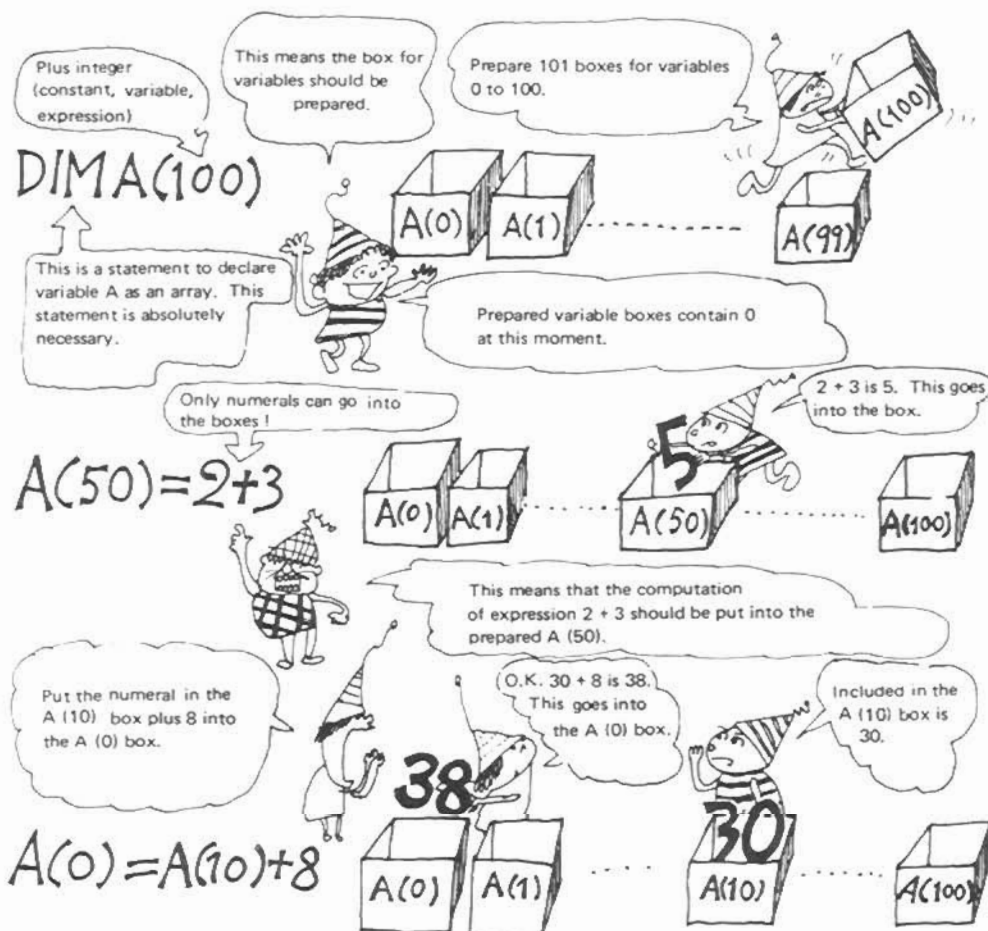 Plus integer
(constant, variable,
expression)
This means the box for
variables should be
prepared.
Prepare 101 boxes for variables
0 to 100.
A(100)
DIMA(100)
A(0)
A(1)
A(99)
This is a statement to declare
variable A as an array. This
statement is absolutely
necessary.
Prepared variable boxes contain 0
at this moment.
Only numerals can go into
the boxes !
2 + 3 is 5. This goes
into the box.
5
A(50)=2+3
A(0)
A(1)
A(50)
A(100)
This means that the computation
of expression 2 + 3 should be put into the
prepared A (50).
Put the numeral in the
A (10) box plus 8 into
the A (0) box.
O.K. 30 + 8 is 38.
This goes into
the A (0) box.
Included in the
A (10) box is
30.
38
30
A(0)=A(10)+8
A(0)
A(1)
A(10)
A(100)